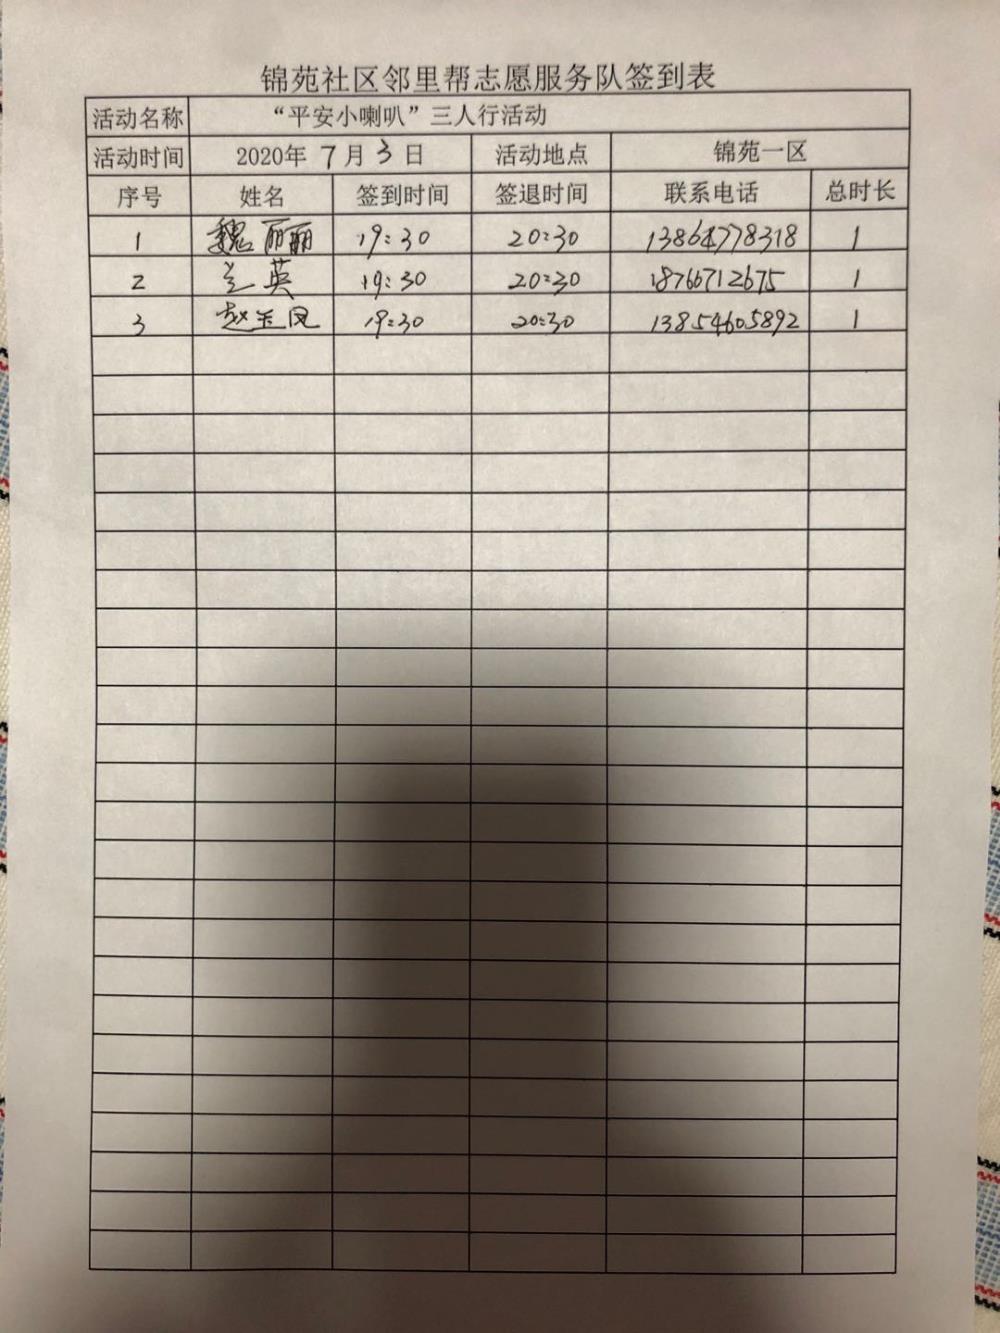 锦苑社区邻里帮志愿服务队签到表
活动名称 “平安小喇叭”三人行活动
活动时间 2020年 7月 3日 活动地点 锦苑一区
序号 姓名 签到时间 签退时间 联系电话 总时长
1 魏丽丽 19:30 20:30 13864778318 1
2 兰英 19:30 20:30 18766712675 1
3 赵玉凤 19:30 20:30 13854605892 1